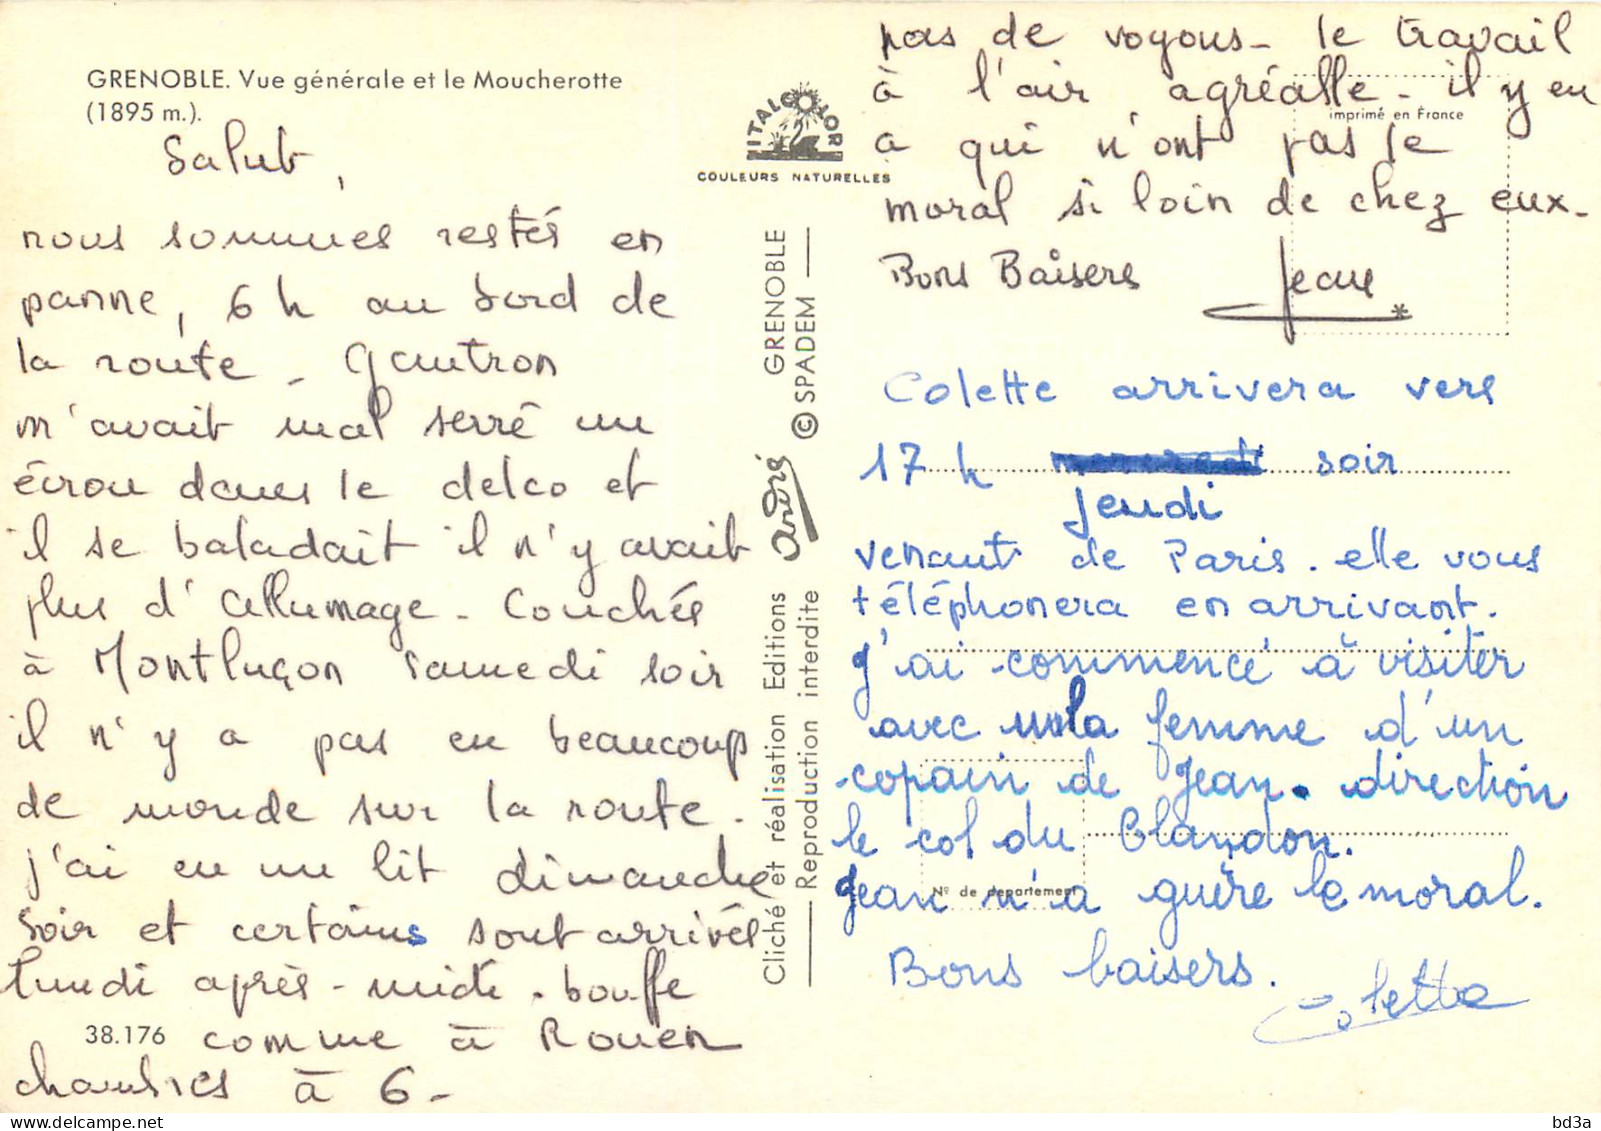 GRENOBLE. Vue générale et le Moucherotte
(1895 m.).
Salut,
nous sommes restés en
panne, 6 h au bord de
la route - Gautron
m'avait mal serré un
écrou dans le delco et
il se baladait il n'y avait
plus d'allumage - Couchés
à Montluçon samedi soir
il n'y a pas eu beaucoup
de monde sur la route.
j'ai eu un lit dimanche
soir et certains sont arrivés
lundi après-midi. bouffe
38.176
comme à Rouen
chambres à 6 -
ITALCOLOR
COULEURS NATURELLES
GRENOBLE
© SPADEM
André
Cliché et réalisation Editions
Reproduction interdite
pas de voyous - le travail
à l'air agréable - il y en
imprimé en France
a qui n'ont pas le
moral si loin de chez eux -
Bons Baisers Jean
Colette arrivera vers
17 h mercredi soir
jeudi
venant de Paris. elle vous
téléphonera en arrivant.
J'ai commencé à visiter
avec la femme d'un
copain de Jean. direction
le col du Glandon.
N° de département
Jean n'a guère le moral.
Bons baisers.
Colette
bd3a